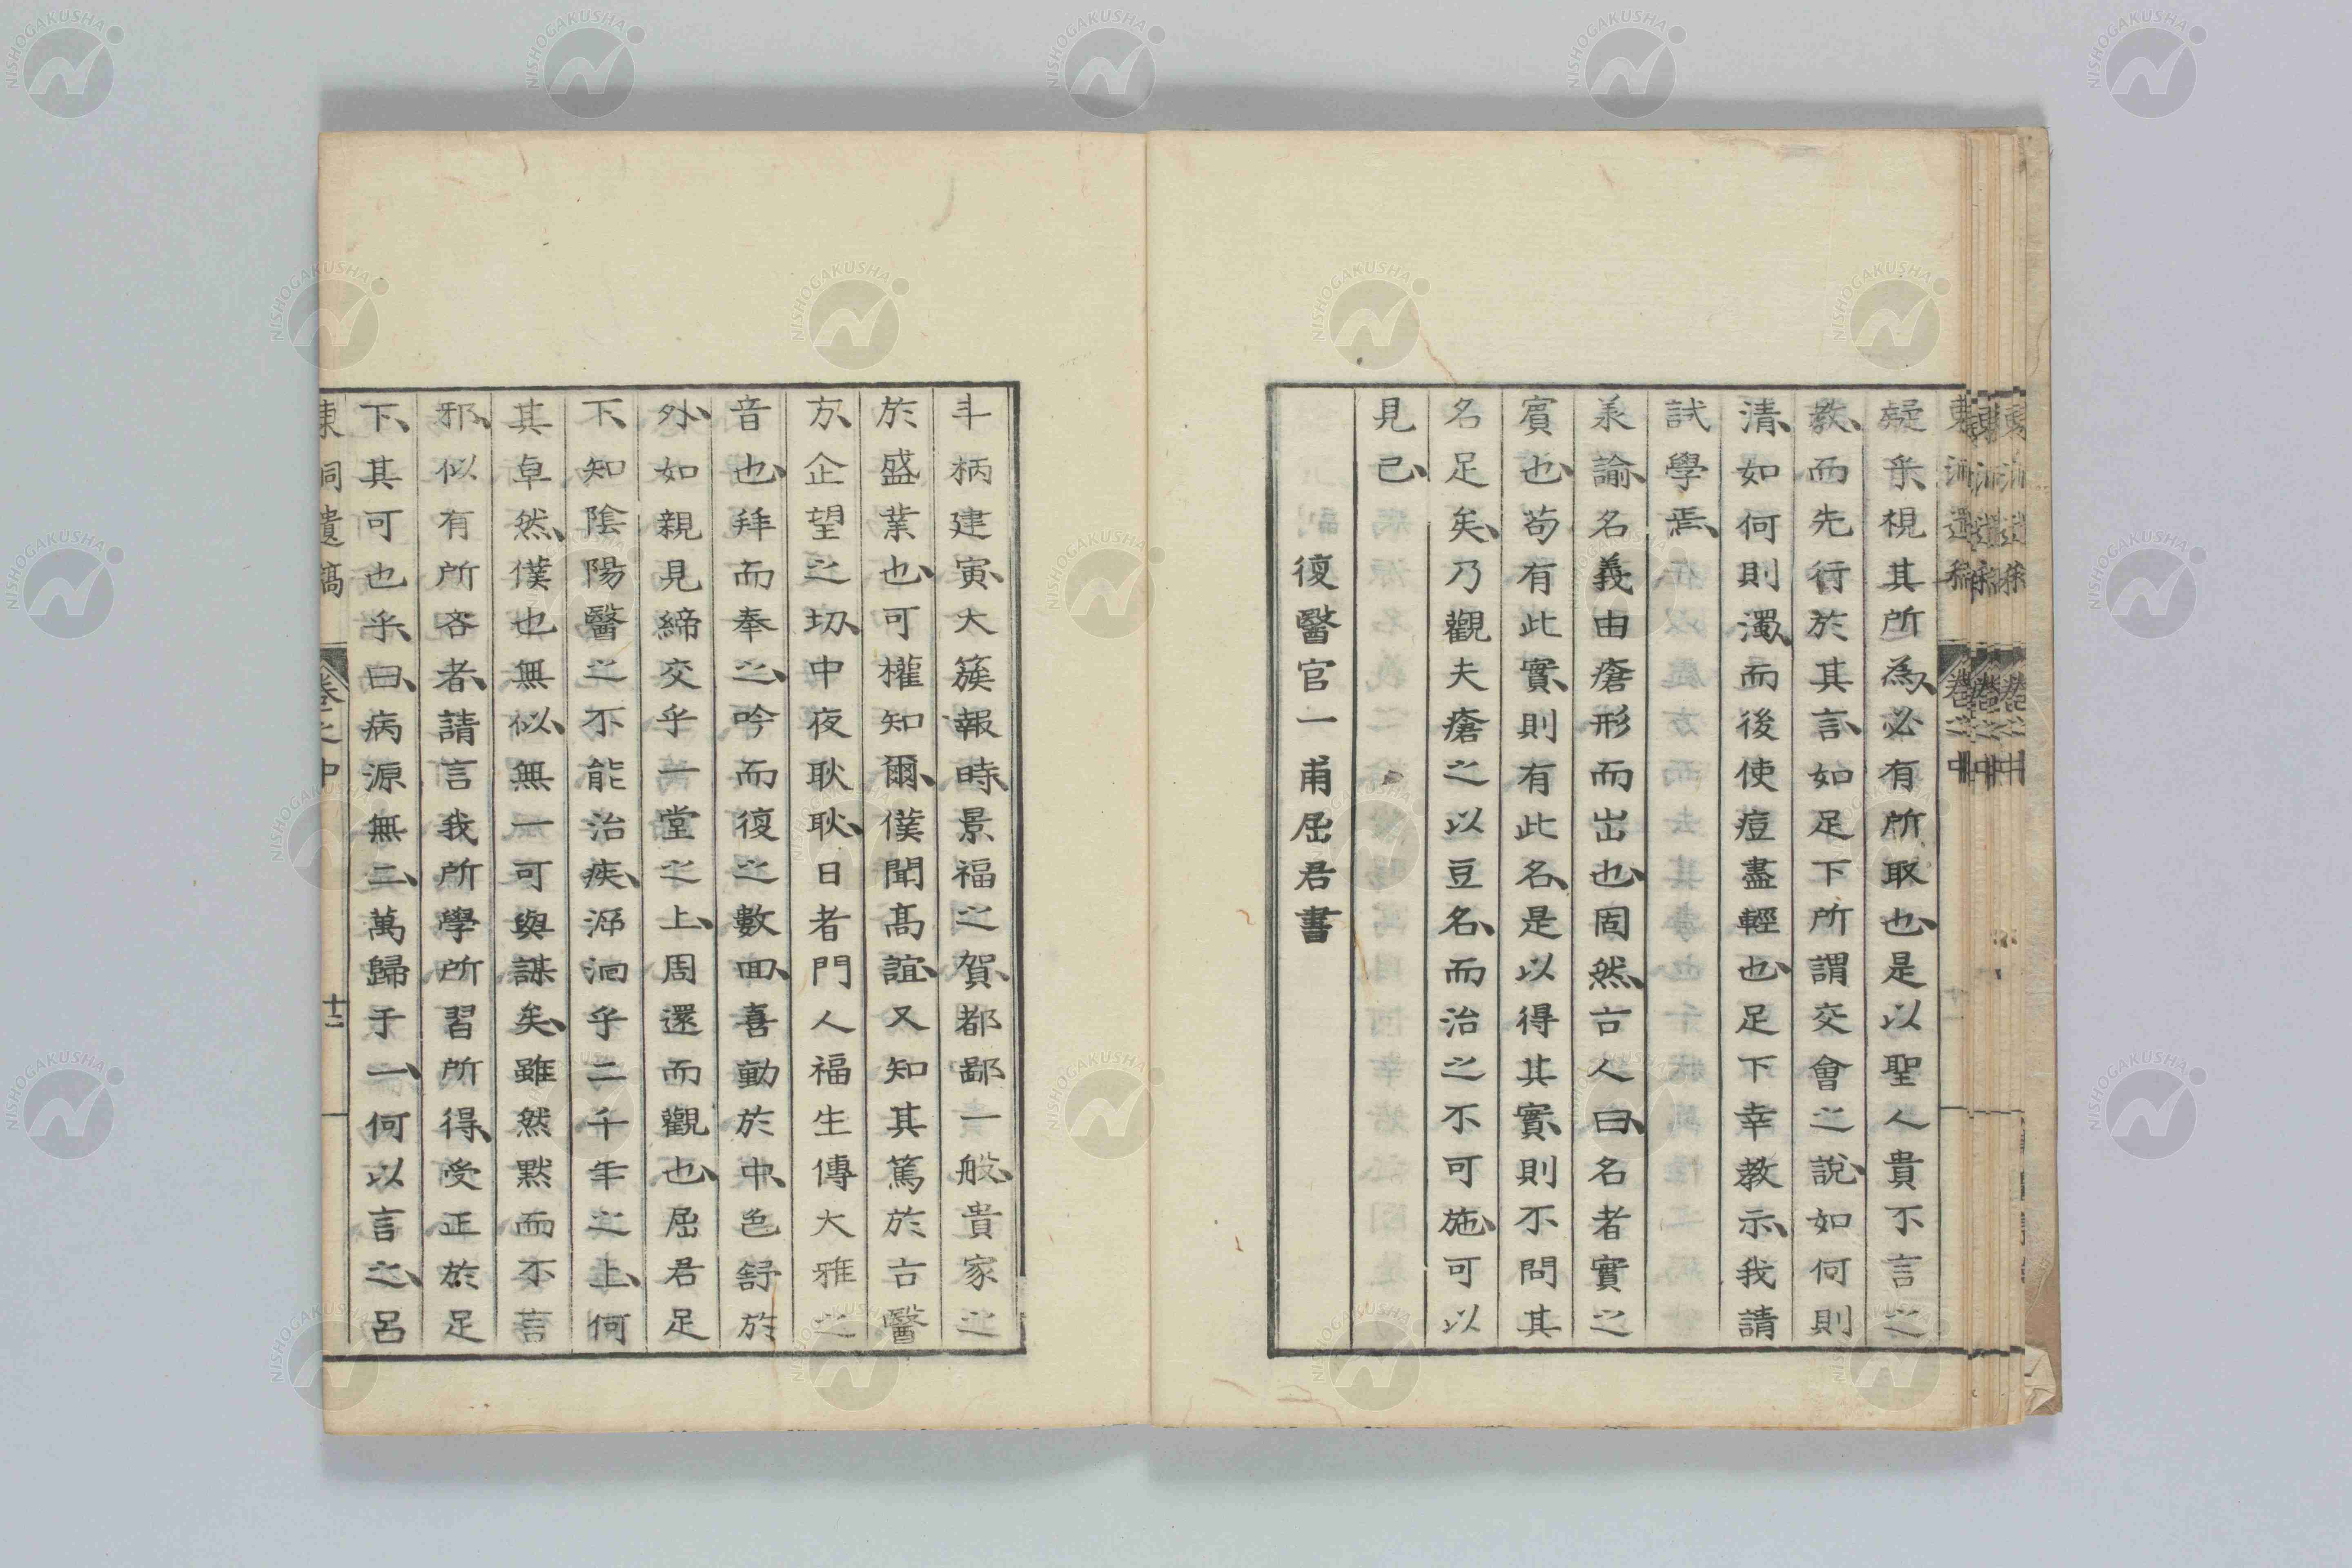 疑乎視其所為、必有所取也、是以聖人貴不言之
教、而先行於其言、如足下所謂交會之說、如何則
清、如何則濁、而後使痘盡輕也、足下幸教示、我請
試學焉、
承諭、名義由瘡形而出也、固然、古人曰、名者實之
賓也、苟有此實、則有此名、是以得其實、則不問其
名足矣、乃觀夫瘡之以豆名、而治之不可施、可以
見已、
復醫官一甫屈君書
斗柄建寅、大簇報時、景福之賀、都鄙一般、貴家之
於盛業也、可權知爾、僕聞高誼、又知其篤於古醫
方、企望之切、中夜耿耿、日者門人福生傳大雅之
音也、拜而奉之、吟而復之數回、喜動於中、色舒於
外、如親見締交乎一堂之上、周還而觀也、屈君足
下、知陰陽醫之不能治疾、泝洄乎二千年之上、何
其卓然、僕也無似、無一可與謀矣、雖然默而不言
邪、似有所吝者、請言我所學所習所得、受正於足
下、其可也乎、曰、病源無二、萬歸于一、何以言之、呂
東洞遺稿 卷之中 十二
NISHOGAKUSHA